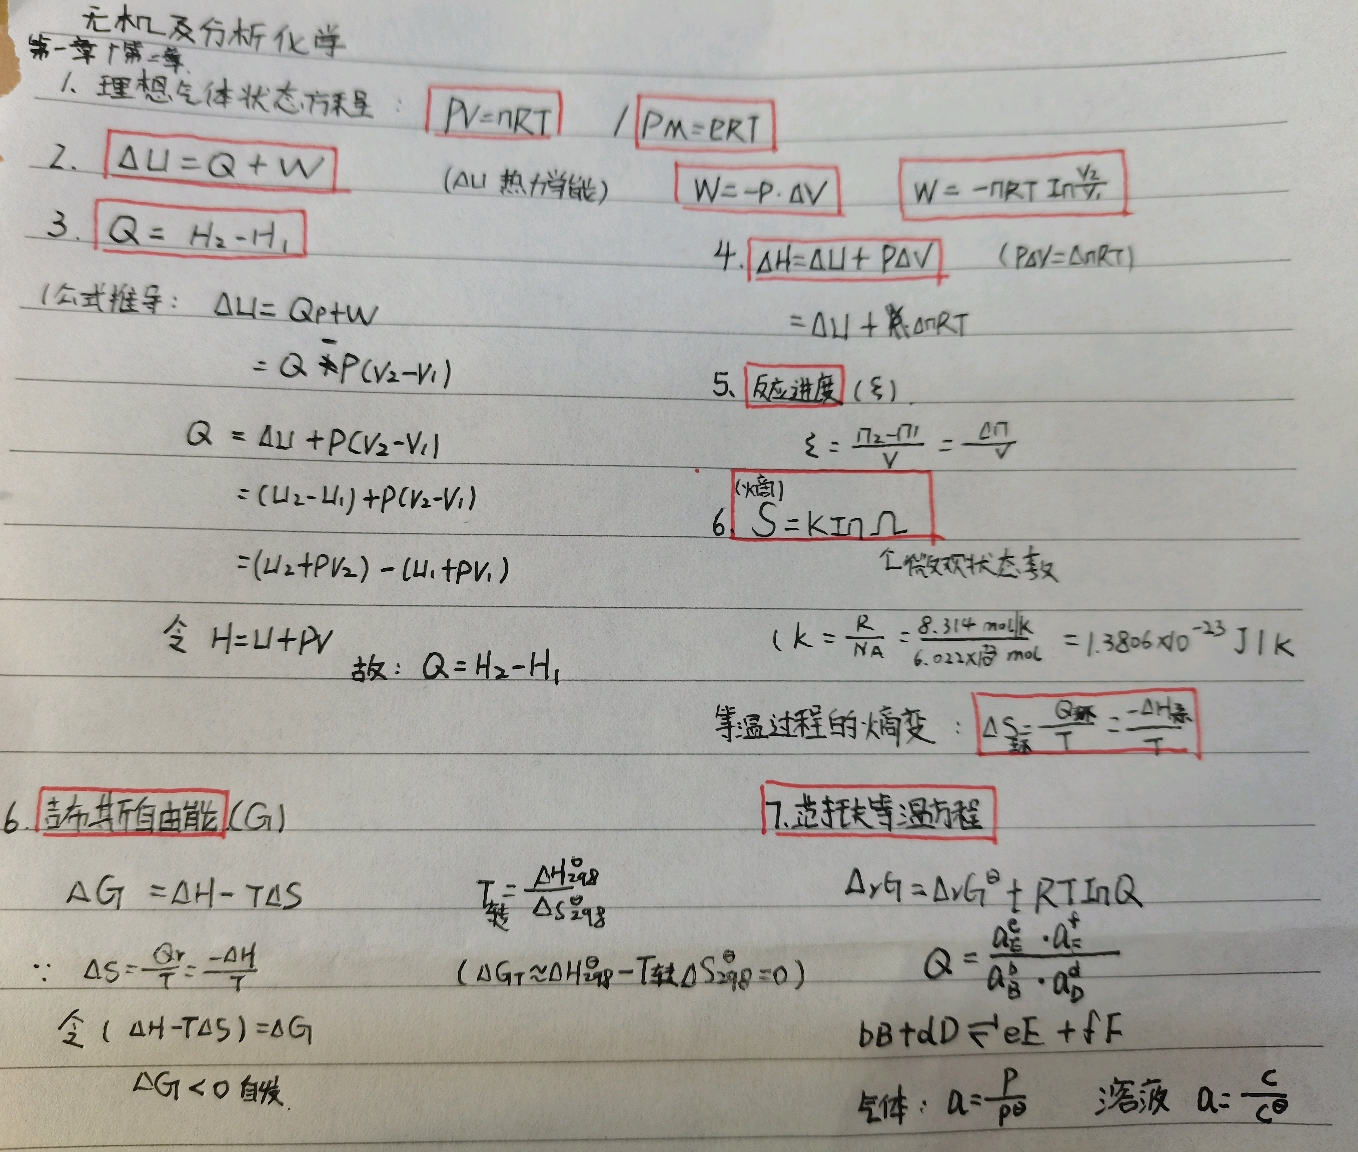 无机及分析化学
第一章 第二章
1. 理想气体状态方程: PV=nRT / PM=ρRT
2. ΔU=Q+W (ΔU 热力学能) W=-P·ΔV W=-nRT ln V₂/V₁
3. Q=H₂-H₁
4. ΔH=ΔU+PΔV (PΔV=ΔnRT)
=ΔU+ΔnRT
(公式推导: ΔU=Qp+W
=Q-P(V₂-V₁)
Q=ΔU+P(V₂-V₁)
=(U₂-U₁)+P(V₂-V₁)
=(U₂+PV₂)-(U₁+PV₁)
令 H=U+PV
故: Q=H₂-H₁
5、反应进度(ξ)
ξ=n₂-n₁/V=Δn/V
(熵)
6. S=KlnΩ
个微观状态数
(k=R/NA=8.314 mol/k / 6.022×10²³ mol=1.3806×10⁻²³ J/K
等温过程的熵变: ΔS环=Q环/T=-ΔH系/T
6. 吉布斯自由能(G)
ΔG=ΔH-TΔS T转=ΔH₂₉₈^θ/ΔS₂₉₈^θ
∵ ΔS=Qr/T=-ΔH/T (ΔGT≈ΔH₂₉₈^θ-T转ΔS₂₉₈^θ=0)
令(ΔH-TΔS)=ΔG
ΔG<0 自发.
7. 范托夫等温方程
ΔrG=ΔrG^θ+RTlnQ
Q=a_E^e·a_F^f/a_B^b·a_D^d
bB+dD⇌eE+fF
气体: a=P/P^θ 溶液 a=C/C^θ